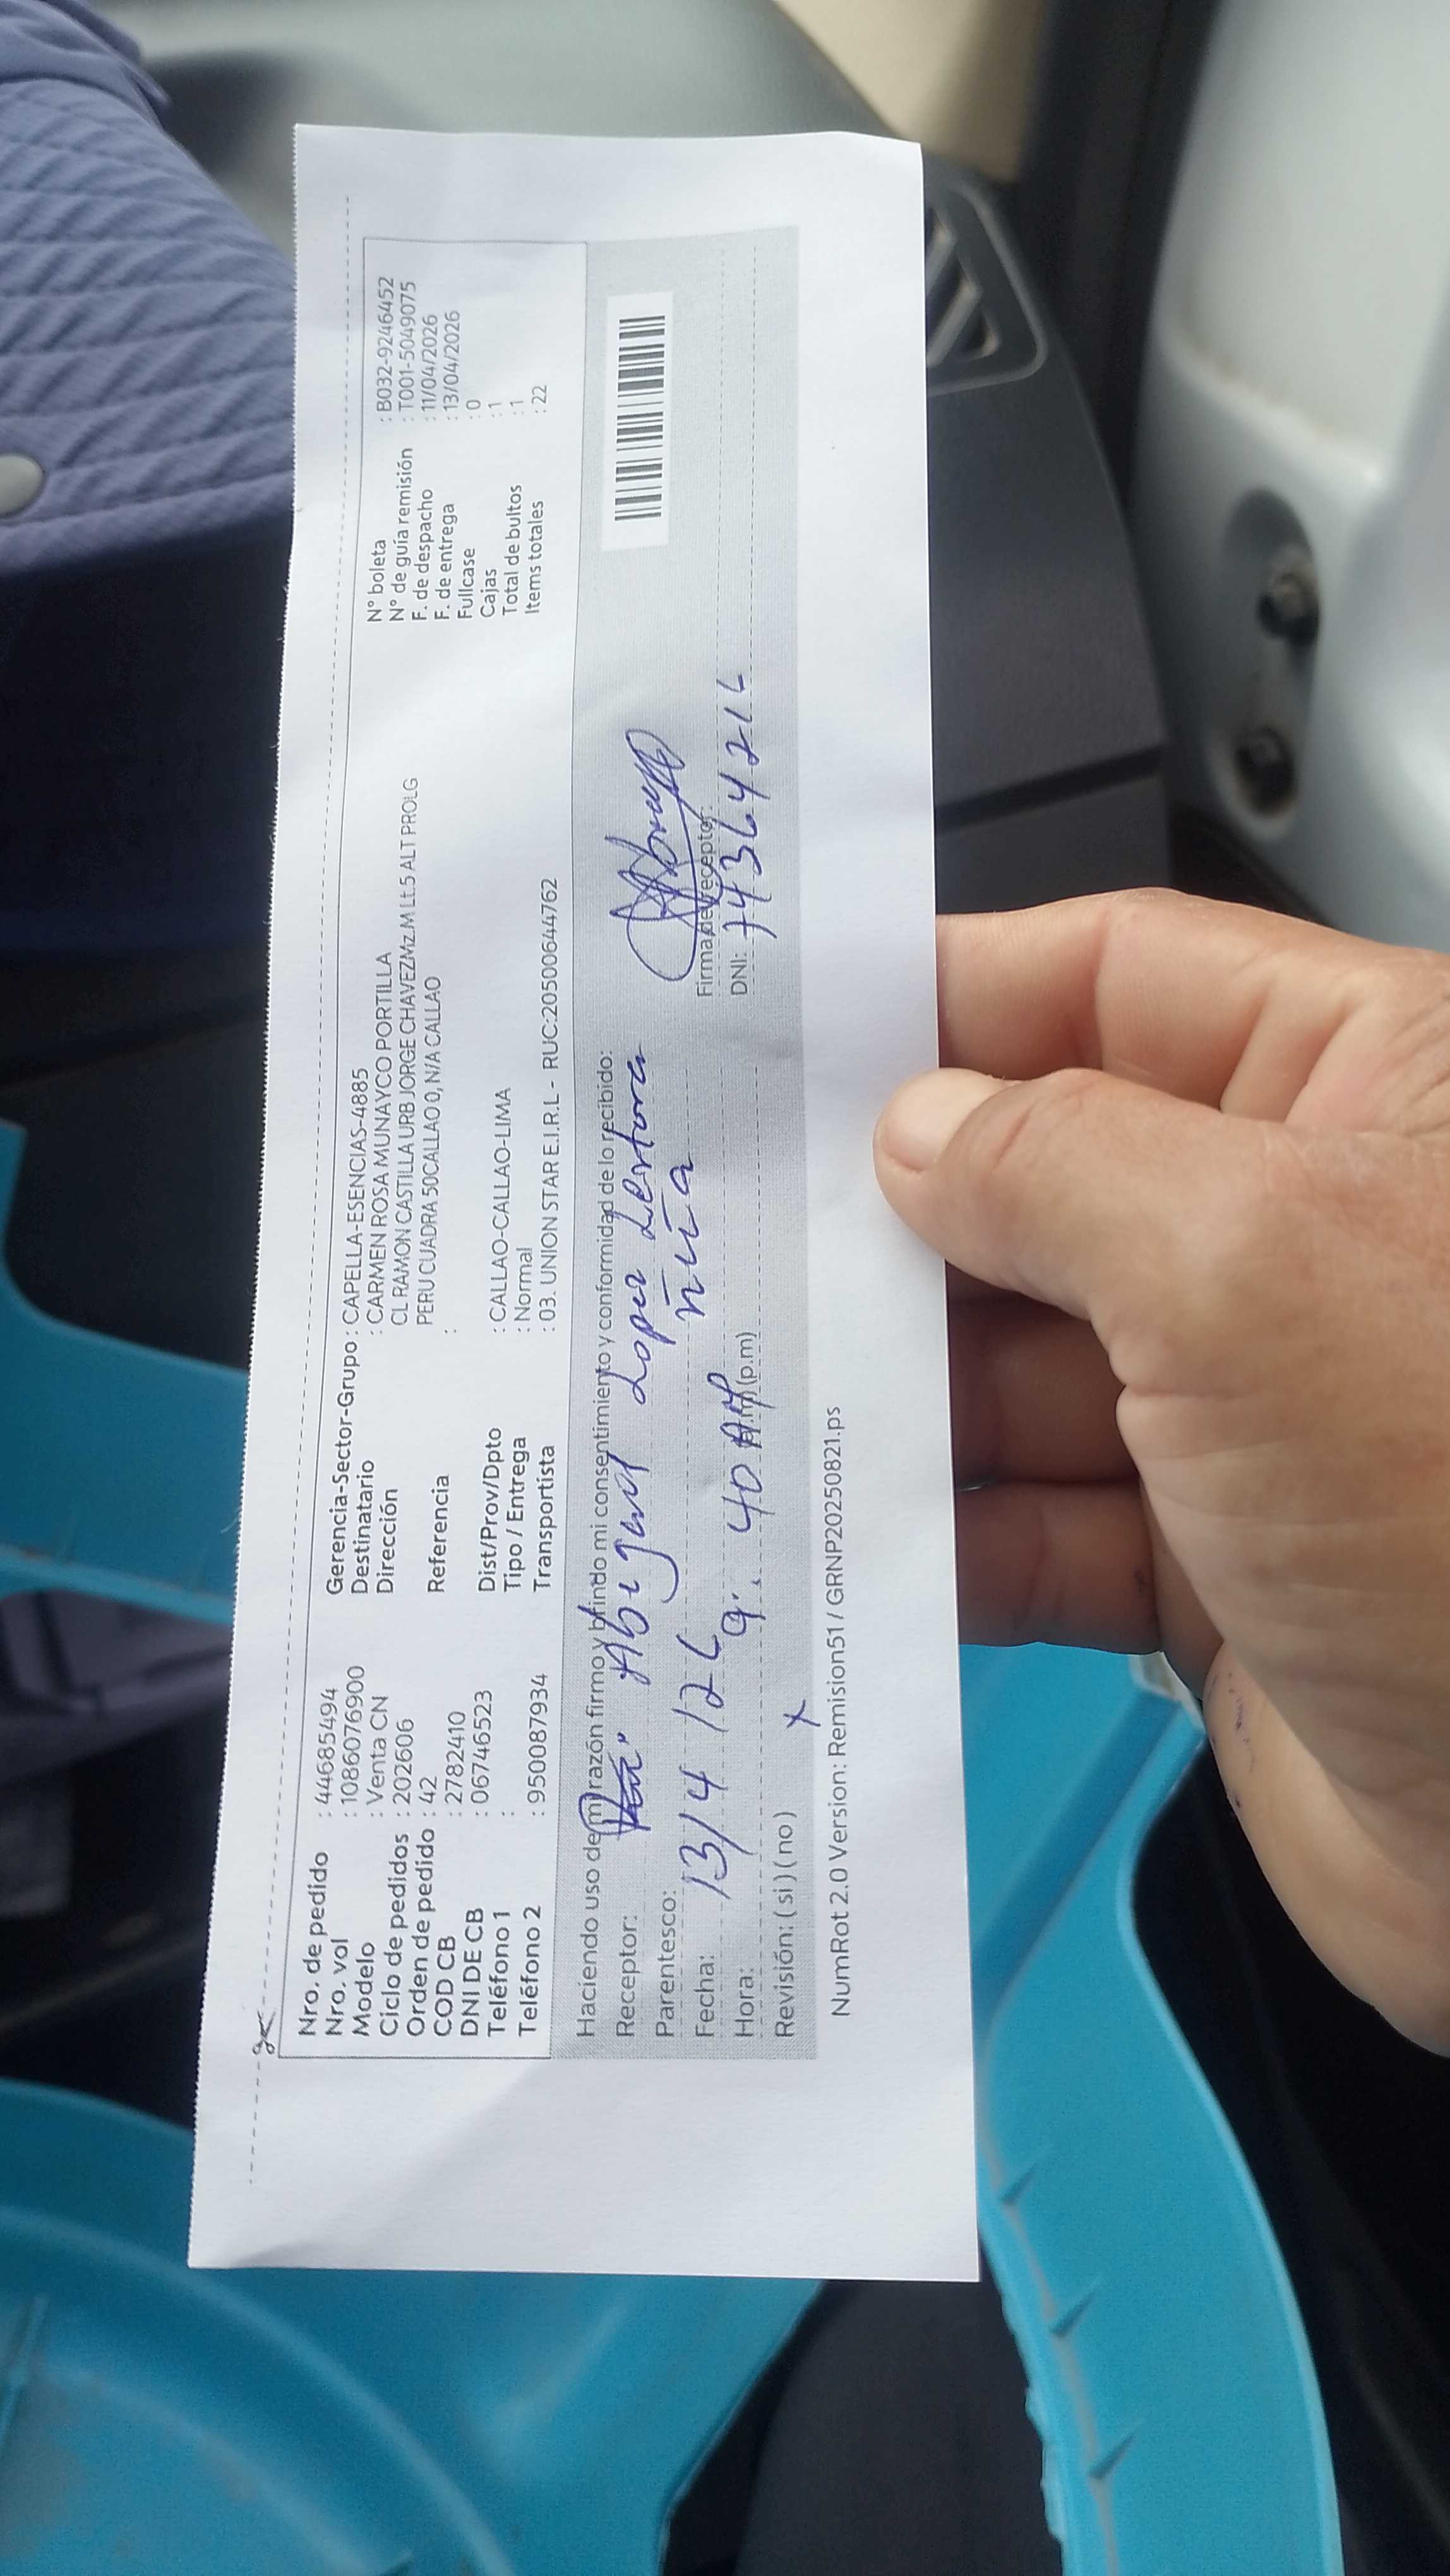 Nro. de pedido : 44685494
Nro. vol : 1086076900
Modelo : Venta CN
Ciclo de pedidos : 202606
Orden de pedido : 42
COD CB : 2782410
DNI DE CB : 06746523
Teléfono 1 :
Teléfono 2 : 950087934
Gerencia-Sector-Grupo : CAPELLA-ESENCIAS-4885
Destinatario : CARMEN ROSA MUNAYCO PORTILLA
Dirección CL RAMON CASTILLA URB JORGE CHAVEZMz.M Lt.5 ALT PROLG
PERU CUADRA 50CALLAO 0, N/A CALLAO
Referencia :
Dist/Prov/Dpto : CALLAO-CALLAO-LIMA
Tipo / Entrega : Normal
Transportista : 03. UNION STAR E.I.R.L - RUC:20500644762
N° boleta : B032-9246452
N° de guía remisión : T001-5049075
F. de despacho : 11/04/2026
F. de entrega : 13/04/2026
Fullcase : 0
Cajas : 1
Total de bultos : 1
Items totales : 22
Haciendo uso de mi razón firmo y brindo mi consentimiento y conformidad de lo recibido:
Receptor: Abigail Lopez
Parentesco:
Fecha: 13/4/26
Hora: 9:40 AM (a.m) (p.m)
Revisión: ( si ) ( no ) X
Firma de receptor:
DNI: 74364216
NumRot 2.0 Version: Remision51 / GRNP20250821.ps